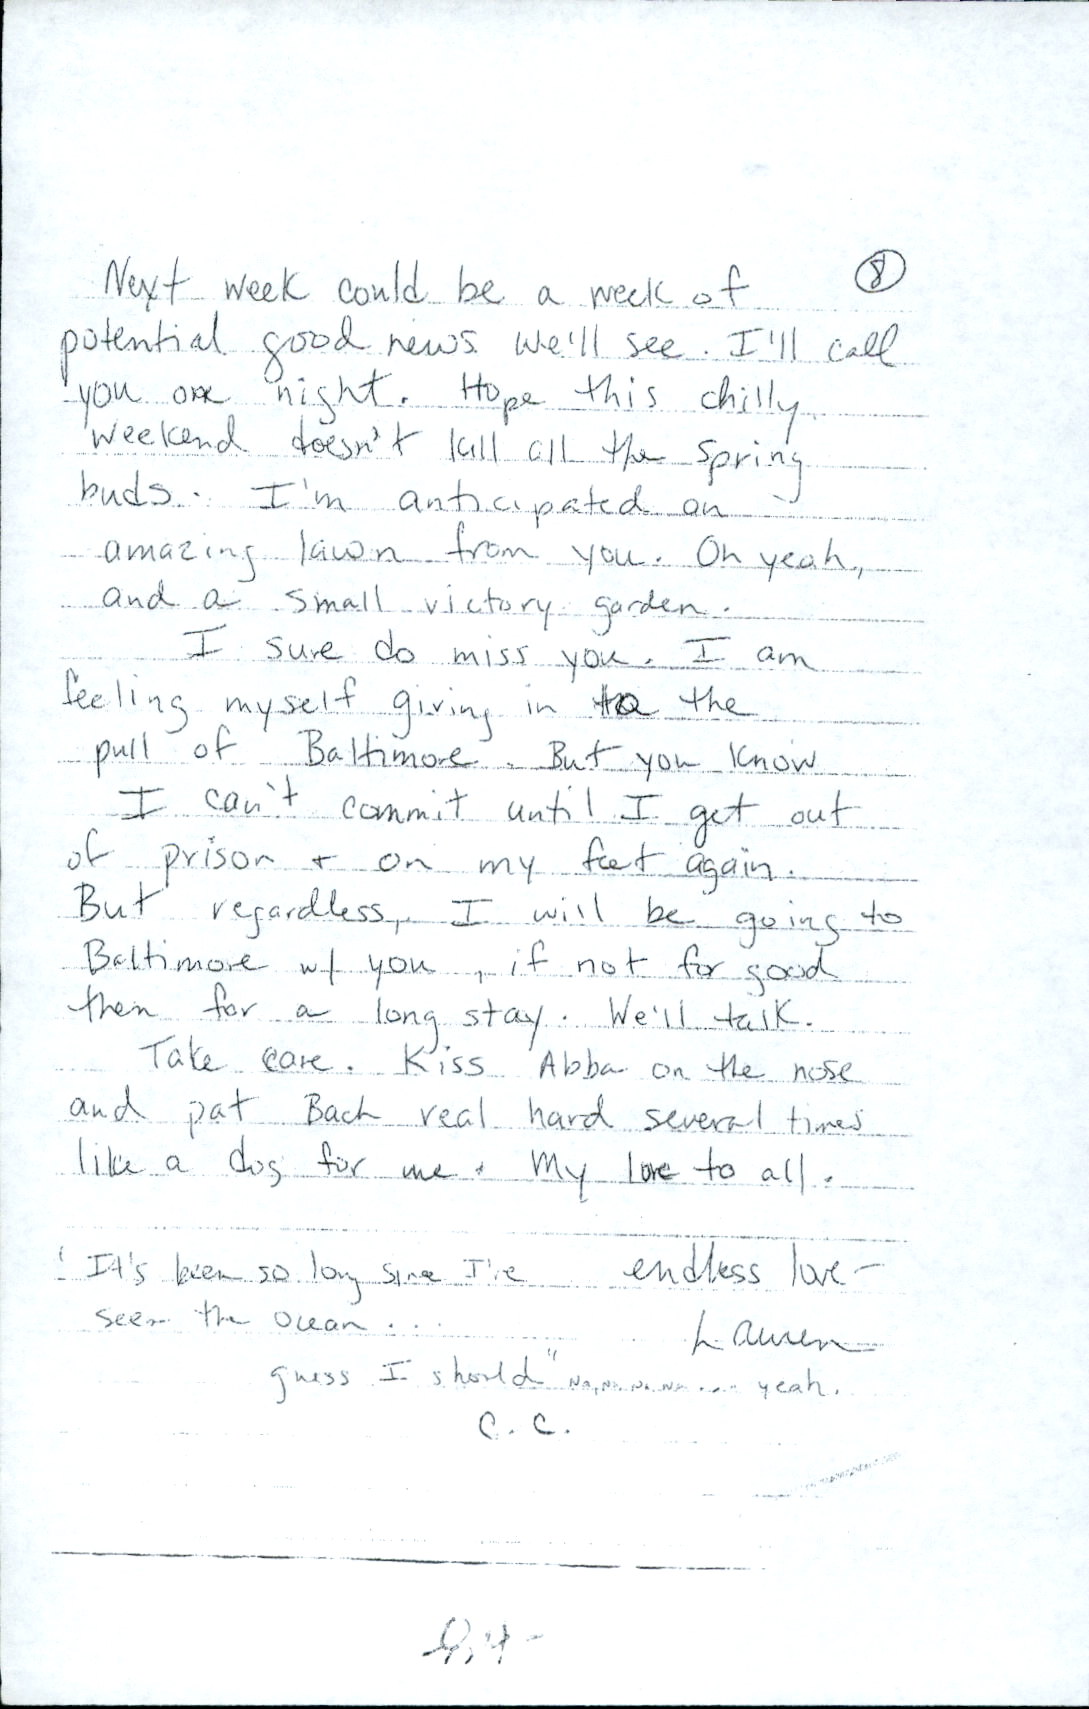 8
Next week could be a week of
potential good news we'll see. I'll call
you one night. Hope this chilly
weekend doesn't kill all the spring
buds. I'm anticipated an
amazing lawn from you. Oh yeah,
and a small victory garden.
I sure do miss you. I am
feeling myself giving in to the
pull of Baltimore. But you know
I can't commit until I get out
of prison + on my feet again.
But regardless, I will be going to
Baltimore w/ you, if not for good
then for a long stay. We'll talk.
Take care. Kiss Abba on the nose
and pat Bach real hard several times
like a dog for me. My love to all.
"It's been so long since I've
endless love -
seen the ocean...
Lauren
guess I should" Na, na, na, na.... yeah.
C.C.